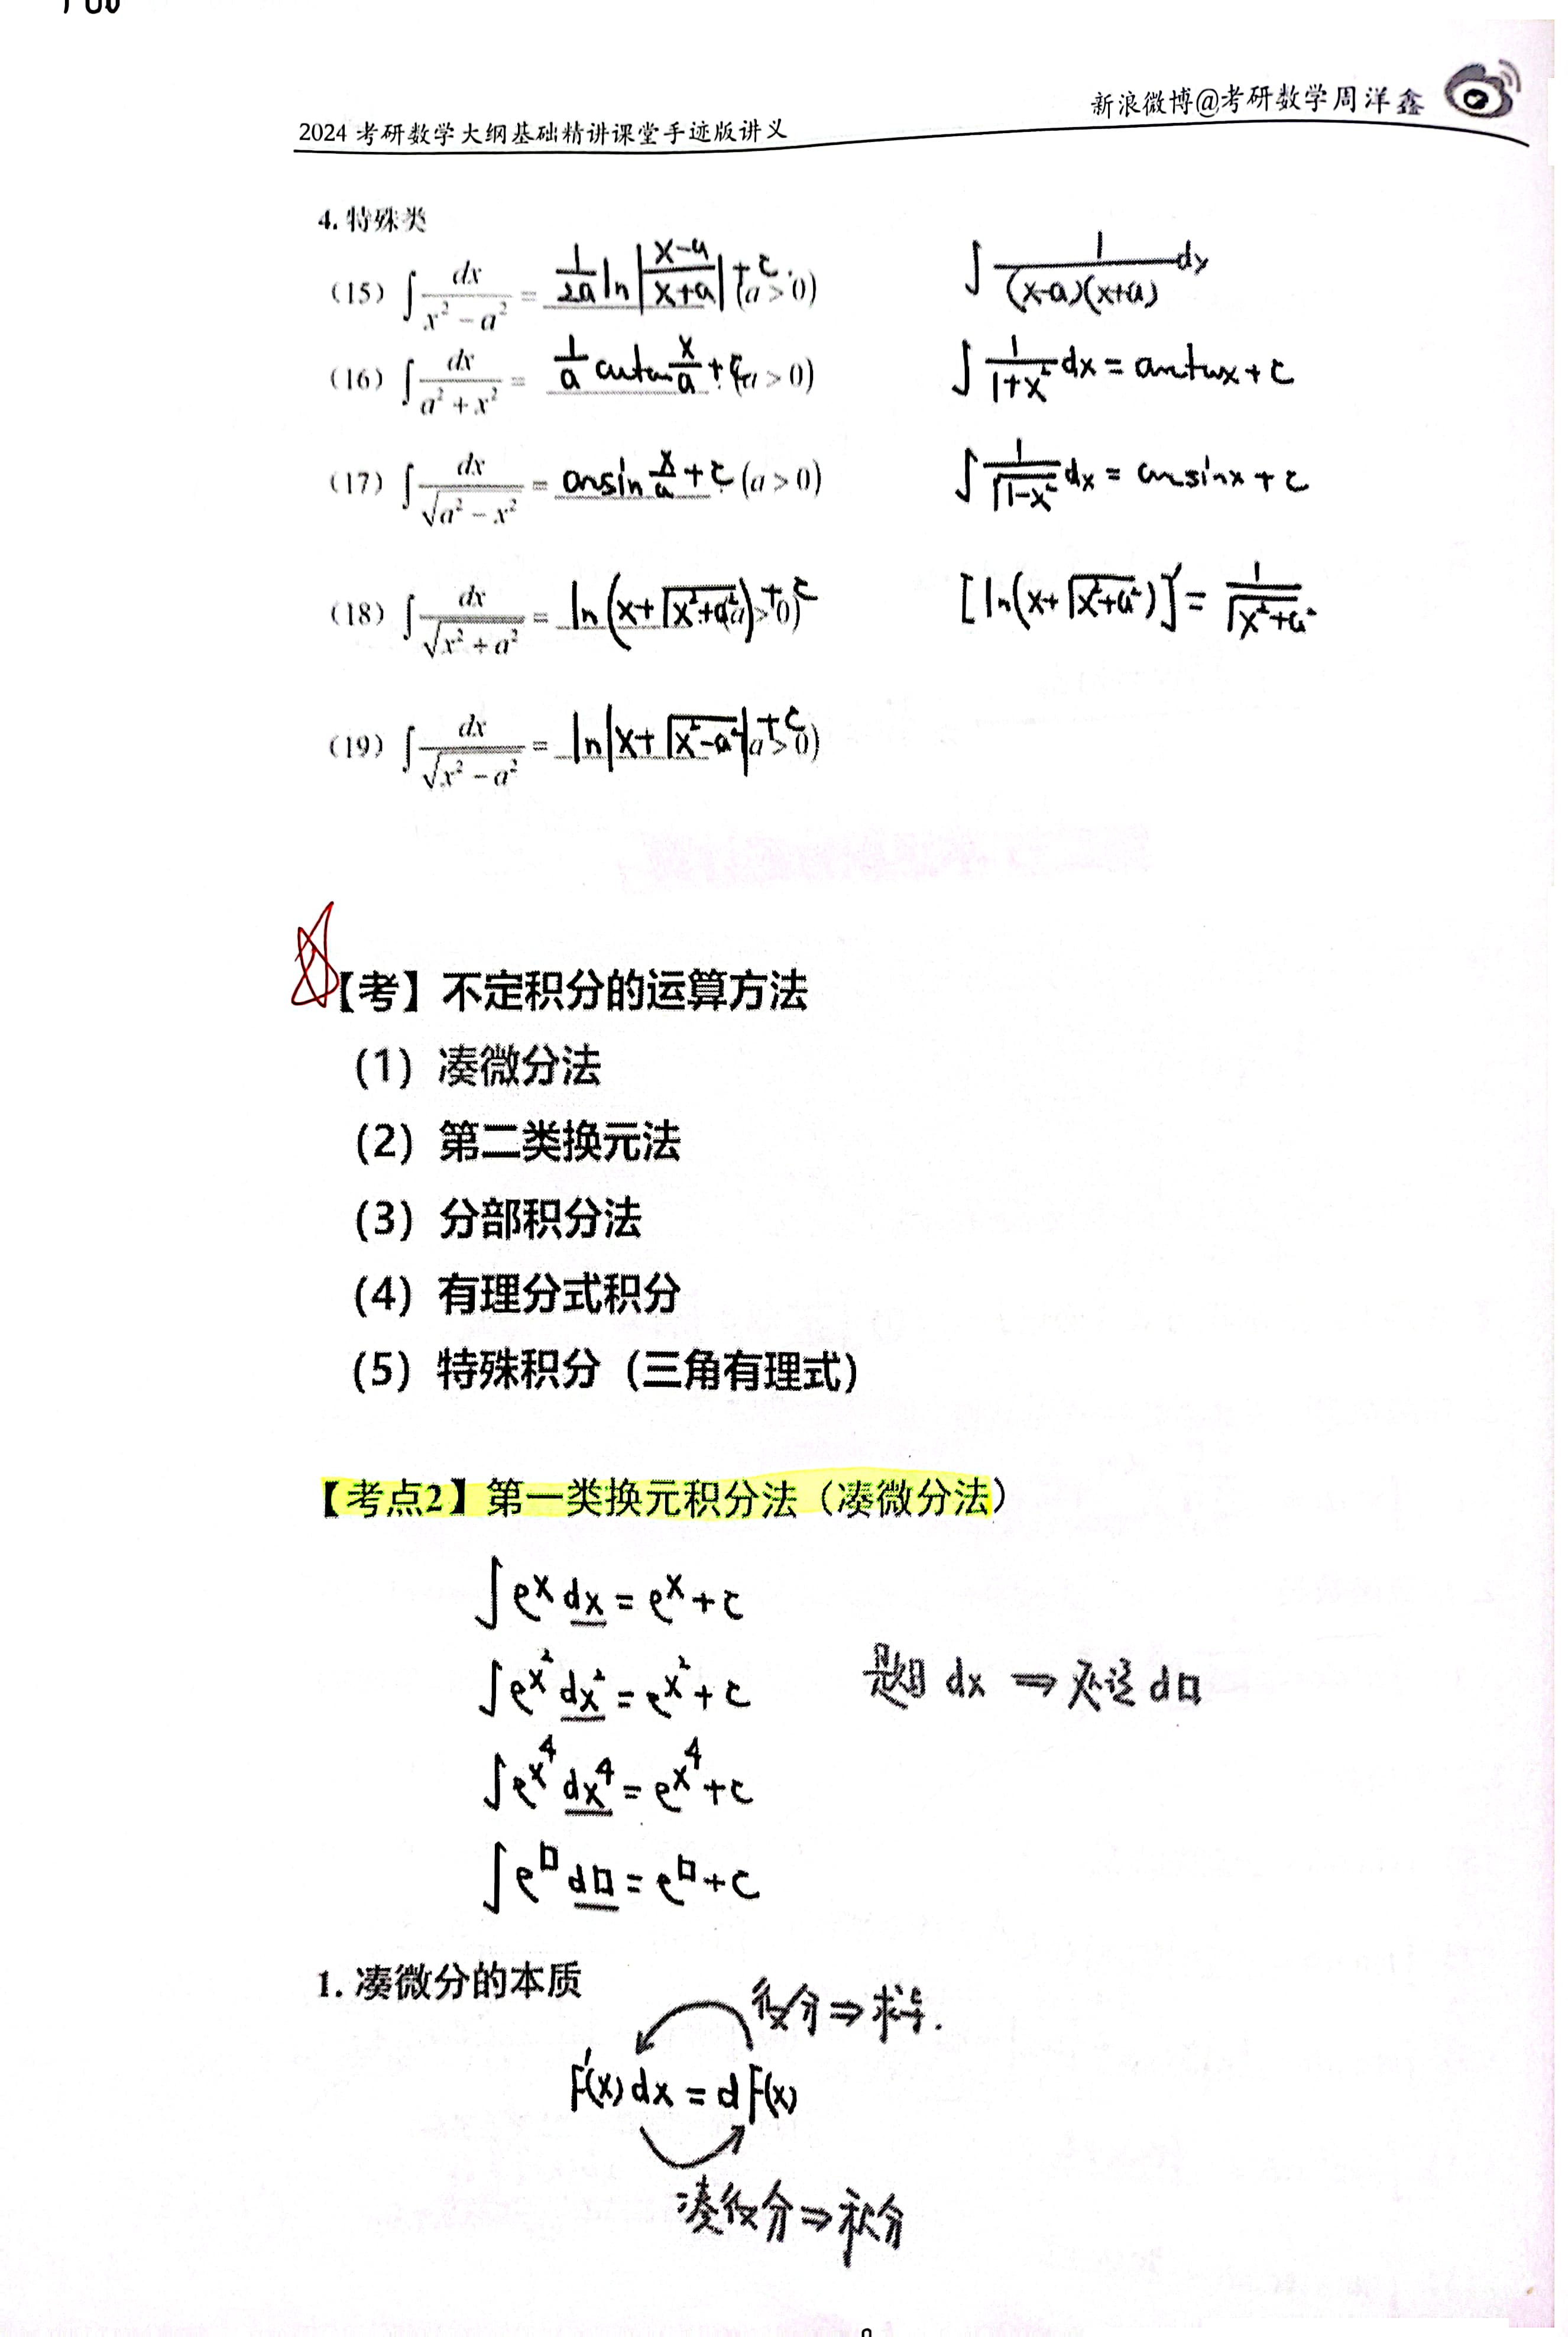 新浪微博@考研数学周洋鑫
2024 考研数学大纲基础精讲课堂手迹版讲义
4. 特殊类
（15）∫ dx/(x² − a²) = 1/(2a) ln|(x−a)/(x+a)| + C. (a > 0)    ∫ 1/((x−a)(x+a)) dx
（16）∫ dx/(a² + x²) = 1/a arctan x/a + C. (a > 0)    ∫ 1/(1+x²) dx = arctanx + C
（17）∫ dx/√(a² − x²) = arcsin x/a + C (a > 0)    ∫ 1/√(1−x²) dx = arcsinx + C
（18）∫ dx/√(x² + a²) = ln(x+√(x²+a²)) + C (a > 0)    [ln(x+√(x²+a²))]′ = 1/√(x²+a²)
（19）∫ dx/√(x² − a²) = ln|x+√(x²−a²)| + C (a > 0)
【考】不定积分的运算方法
（1）凑微分法
（2）第二类换元法
（3）分部积分法
（4）有理分式积分
（5）特殊积分（三角有理式）
【考点2】第一类换元积分法（凑微分法）
∫eˣ dx = eˣ + C
∫e^x² dx² = e^x² + C
题目 dx ⇒ 不选 d□
∫e^x⁴ dx⁴ = e^x⁴ + C
∫e^□ d□ = e^□ + C
1. 凑微分的本质
微分⇒求导.
F′(x) dx = d F(x)
凑微分⇒积分